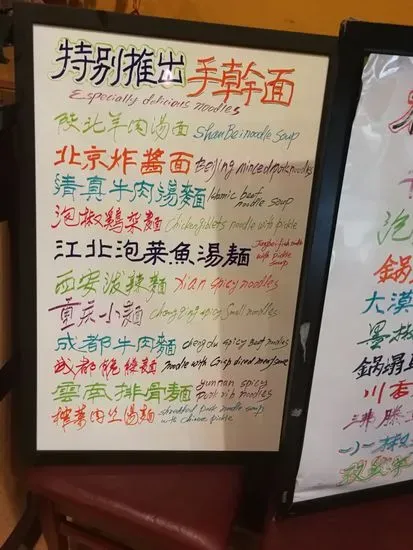 特别推出 手幹面
Especially delicious noodles
陕北羊肉湯面 ShanBei noodle soup
北京炸醬面 Beijing minced pork noodles
清真牛肉湯麵 Islamic beef noodle soup
泡椒鷄菜麵 Chicken giblets noodle with pickle
江北泡菜魚湯麵 Jiangbei fish noodle with pickle soup
西安泼辣麵 Xian spicy noodles
重庆小麵 chongqing spicy small noodles
成都牛肉麵 chengdu spicy beef noodles
成都脆燥麵 noodle with Crisp diced meat sauce
雲南排骨麵 yunnan spicy pork rib noodles
榨菜肉丝湯麵 shredded pork noodle soup with chinese pickle
泡
鍋
大漠
鍋塌
川香